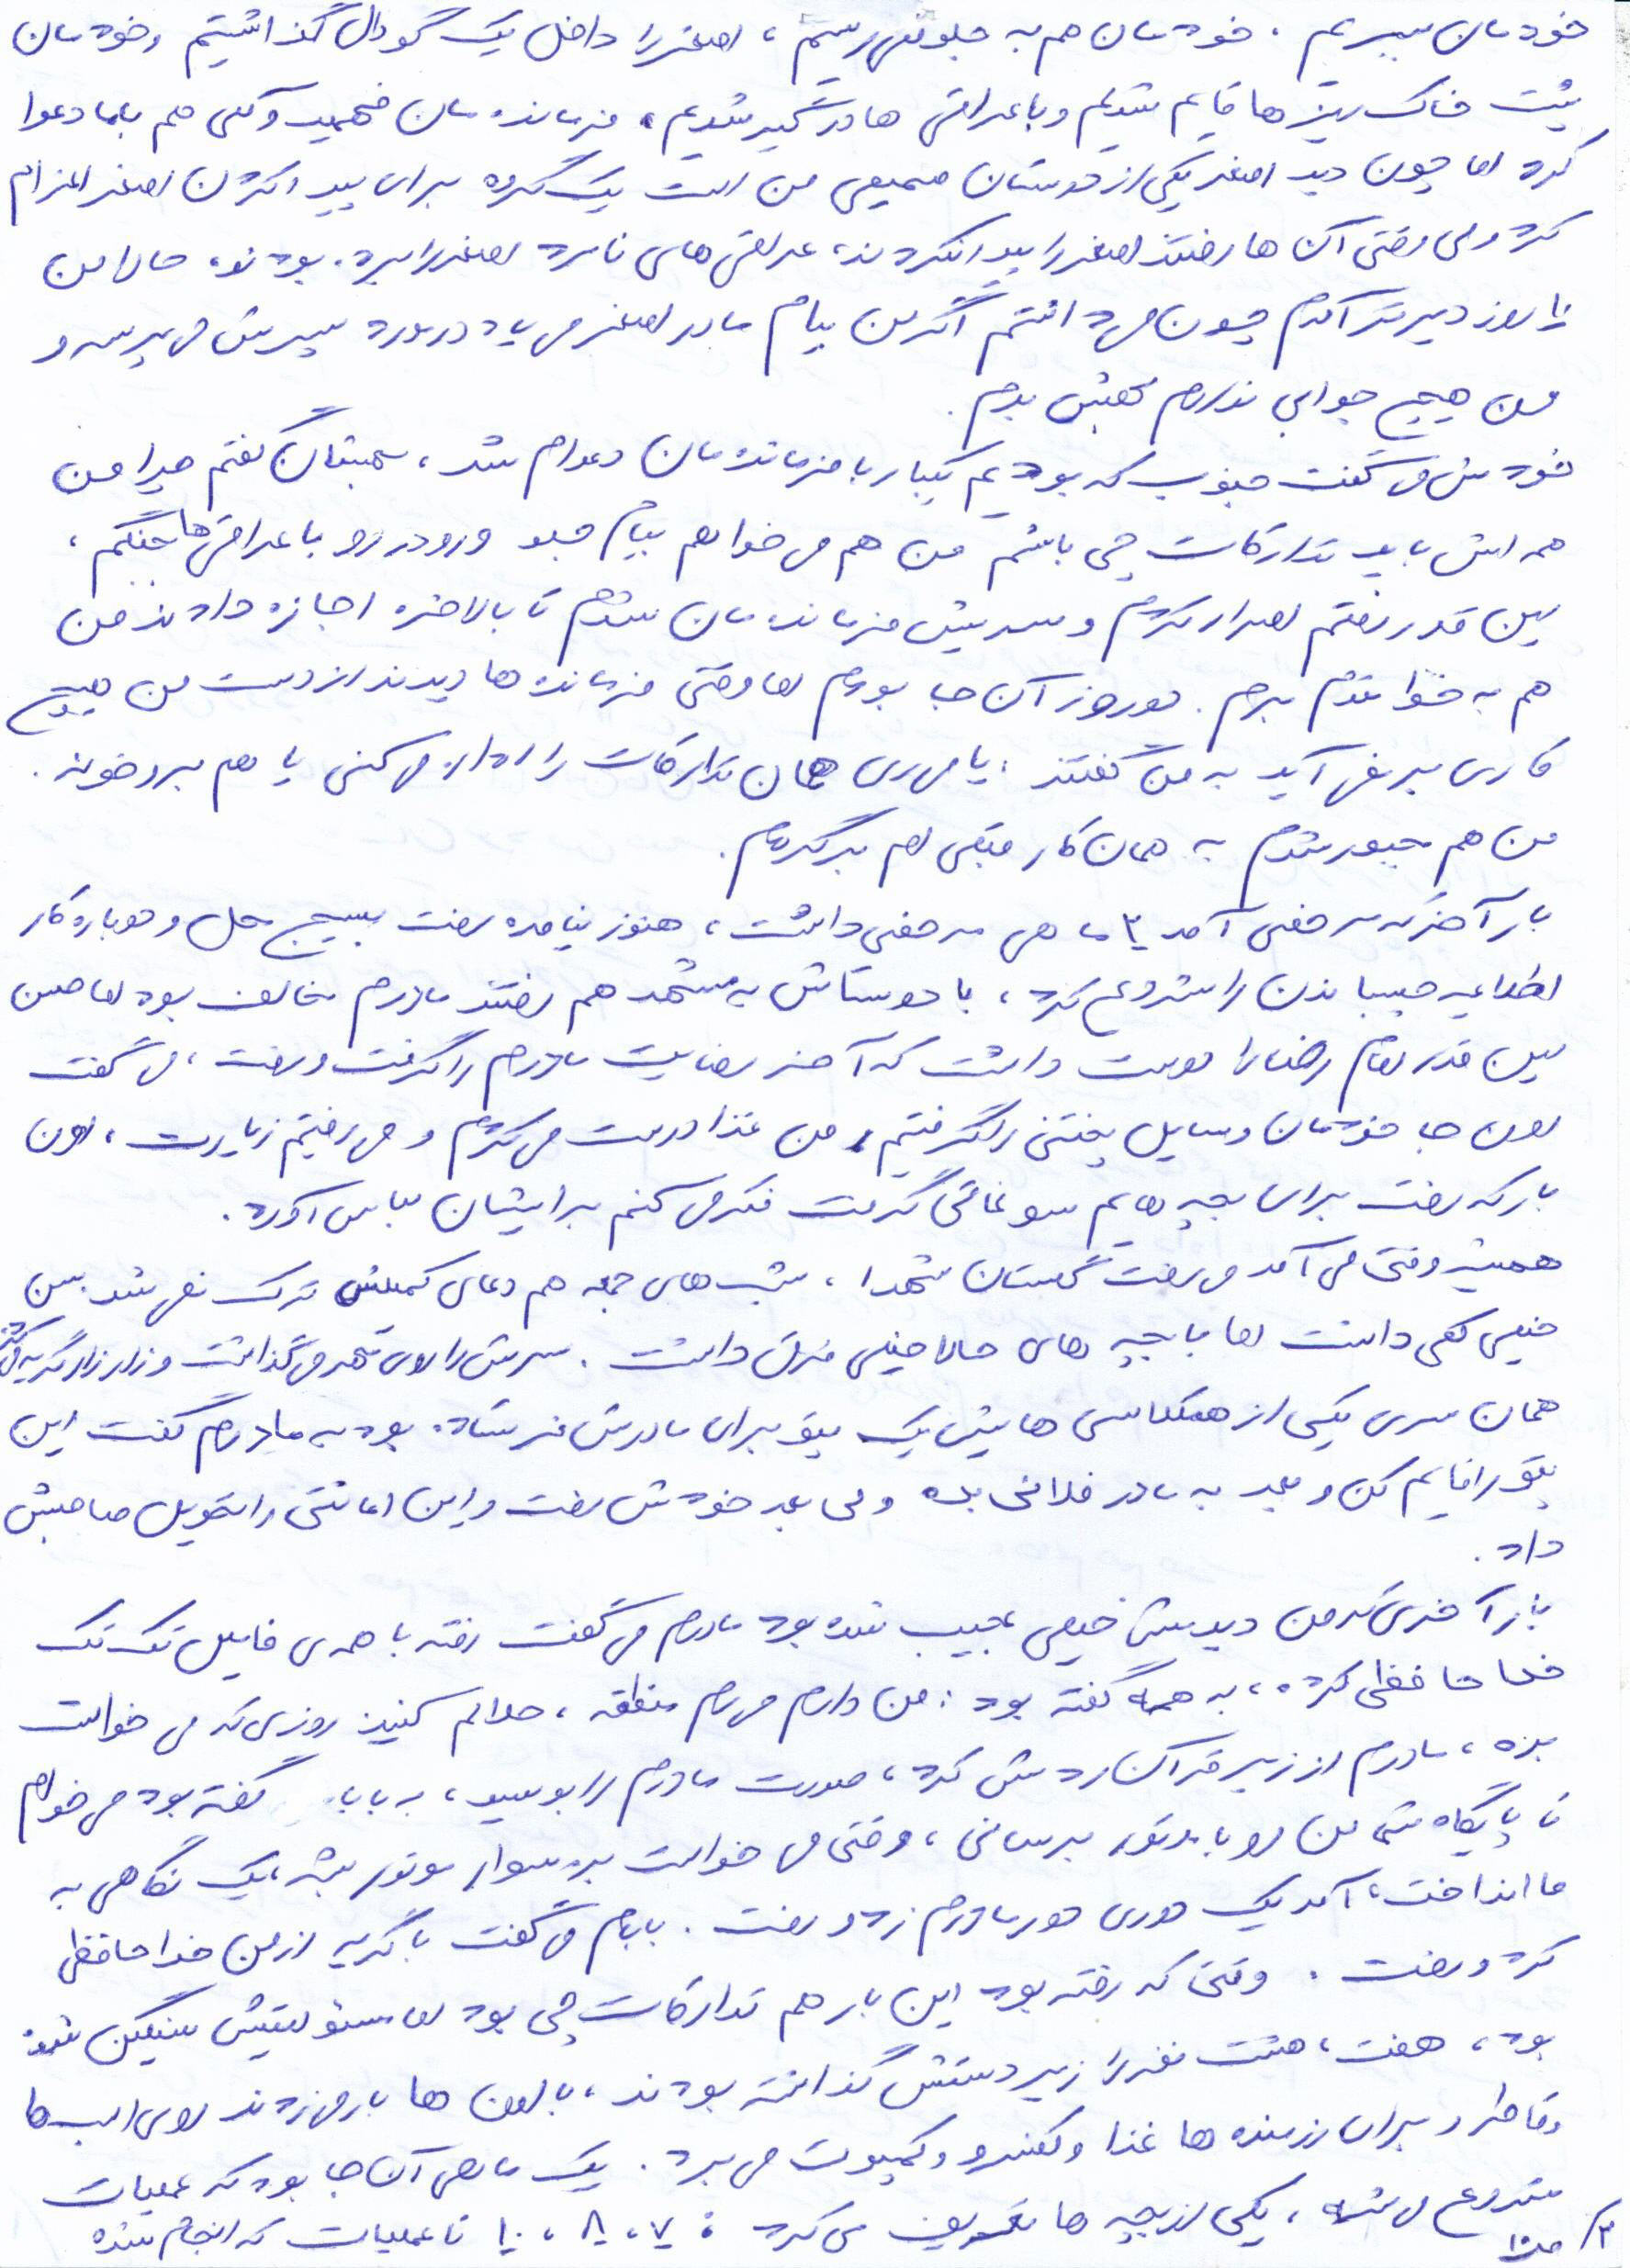 خودمان ببریم. خودمان هم به جلو نمی‌رسیم، اصغر را داخل یک گودال گذاشتیم و خودمان
پشت خاک ریزها قایم شدیم و با عراقی ها درگیر شدیم، فرمانده مان فهمید و کلی هم با ما دعوا
کرد اما چون دید اصغر یکی از دوستان صمیمی من است یک گروه برای پیدا کردن اصغر اعزام
کرد ولی وقتی آن ها رفتند اصغر را پیدا نکردند، عراقی های نامرد اصغر را برده بودند، حالا من
۱۰ روز دیرتر آمدم چون می دانستم اگر من بیام مادر اصغر می یاد در مورد پسرش می پرسد و
من هیچ جوابی ندارم بهش بدم.
خودش می گفت جنوب که بودیم یکبار با فرمانده مان دعوام شد، بهشان گفتم چرا من
همه اش باید تدارکات چی باشم من هم می خواهم بیام جلو و رو در رو با عراقی ها بجنگم،
این قدر رفتم اصرار کردم و پیش فرمانده مان شدم تا بالاخره اجازه دادند من
هم به خط مقدم برم. دو روز آن جا بودم اما وقتی فرمانده ها دیدند از دست من هیچ
کاری بر نمی آید به من گفتند: یا می ری همان تدارکات را ادامه می کنی یا هم برو خونه.
من هم مجبور شدم به همان کار قبلی ام برگردم.
بار آخر که مرخصی آمد ۳ ماهی مرخصی داشت، هنوز نیامده رفت بسیج محل و دوباره کار
اطلاعیه چسباندن را شروع کرد، با دوستاش به مشهد هم رفتند مادرم مخالف بود اما حسن
این قدر امام رضا را دوست داشت که آخر رضایت مادرم را گرفت و رفت، می گفت
اون جا خودمان وسایل پختنی را گرفتیم، من غذا درست می کردم و می رفتیم زیارت، اون
بار که رفت برای بچه هایم سوغاتی گرفت فکر می کنم برایشان لباس آورد.
همیشه وقتی می آمد می رفت گلستان شهدا، شب های جمعه هم دعای کمیلش ترک نمی شد. سن
خیلی کمی داشت اما با بچه های حالا خیلی فرق داشت. سرش را روی مهر می گذاشت و زار زار گریه می کرد
همان سری یکی از همکلاسی هایش یک پتو برای مادرش فرستاده بود به مادرم گفت این
پتو را قایم کن و ببر به مادر فلانی بده ولی بعد خودش رفت و این امانتی را تحویل صاحبش
داد.
بار آخری که من دیدمش خیلی عجیب شده بود مادرم می گفت رفته با همه ی فامیل تک تک
خداحافظی کرده، به همه گفته بود: من دارم می رم منطقه، حلالم کنید روزی که می خواست
بره، مادرم از زیر قرآن ردش کرد، صورت مادرم را بوسید، به بابا گفته بود می خوام
تا پایگاه شما من رو با موتور برسانی، وقتی می خواست بره سوار موتور بشه یک نگاهی به
ما انداخت، آمد یک دوری دور مادرم زد و رفت. بابام می گفت با گریه از من خداحافظی
کرد و رفت. وقتی که رفته بود این بار هم تدارکات چی بود اما مسئولیتش سنگین شده
بود، هفت، هشت نفر را زیر دستش گذاشته بودند، با اون ها بار می زدند روی اسب ها
و قاطر و برای رزمنده ها غذا و کنسرو و کمپوت می برد. یک ماهی آن جا بود که عملیات
شروع می شه، یکی از بچه ها تعریف می کرد: ۷، ۸، ۱۰ تا عملیات که انجام شده
۳/